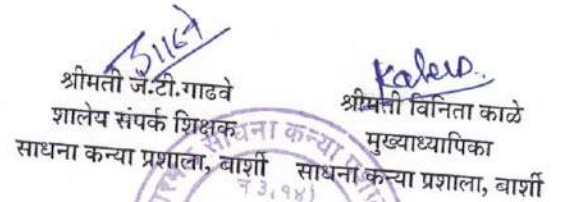 श्रीमती जे.टी.गाडवे
शालेय संपर्क शिक्षक
साधना कन्या प्रशाला, बार्शी
श्रीमती विनिता काळे
मुख्याध्यापिका
साधना कन्या प्रशाला, बार्शी